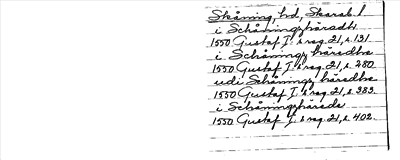 Skåning, hd, Skarab. l
i Schåningzhäradt
1550 Gustaf I: s reg. 21, s. 131
i Schåningz häradhe
1550 Gustaf I: s reg. 21, s. 280
udi Schåningz häradhe
1550 Gustaf I: s reg. 21, s. 383.
i Schåningzhärade
1550 Gustaf I: s reg. 21, s. 402.